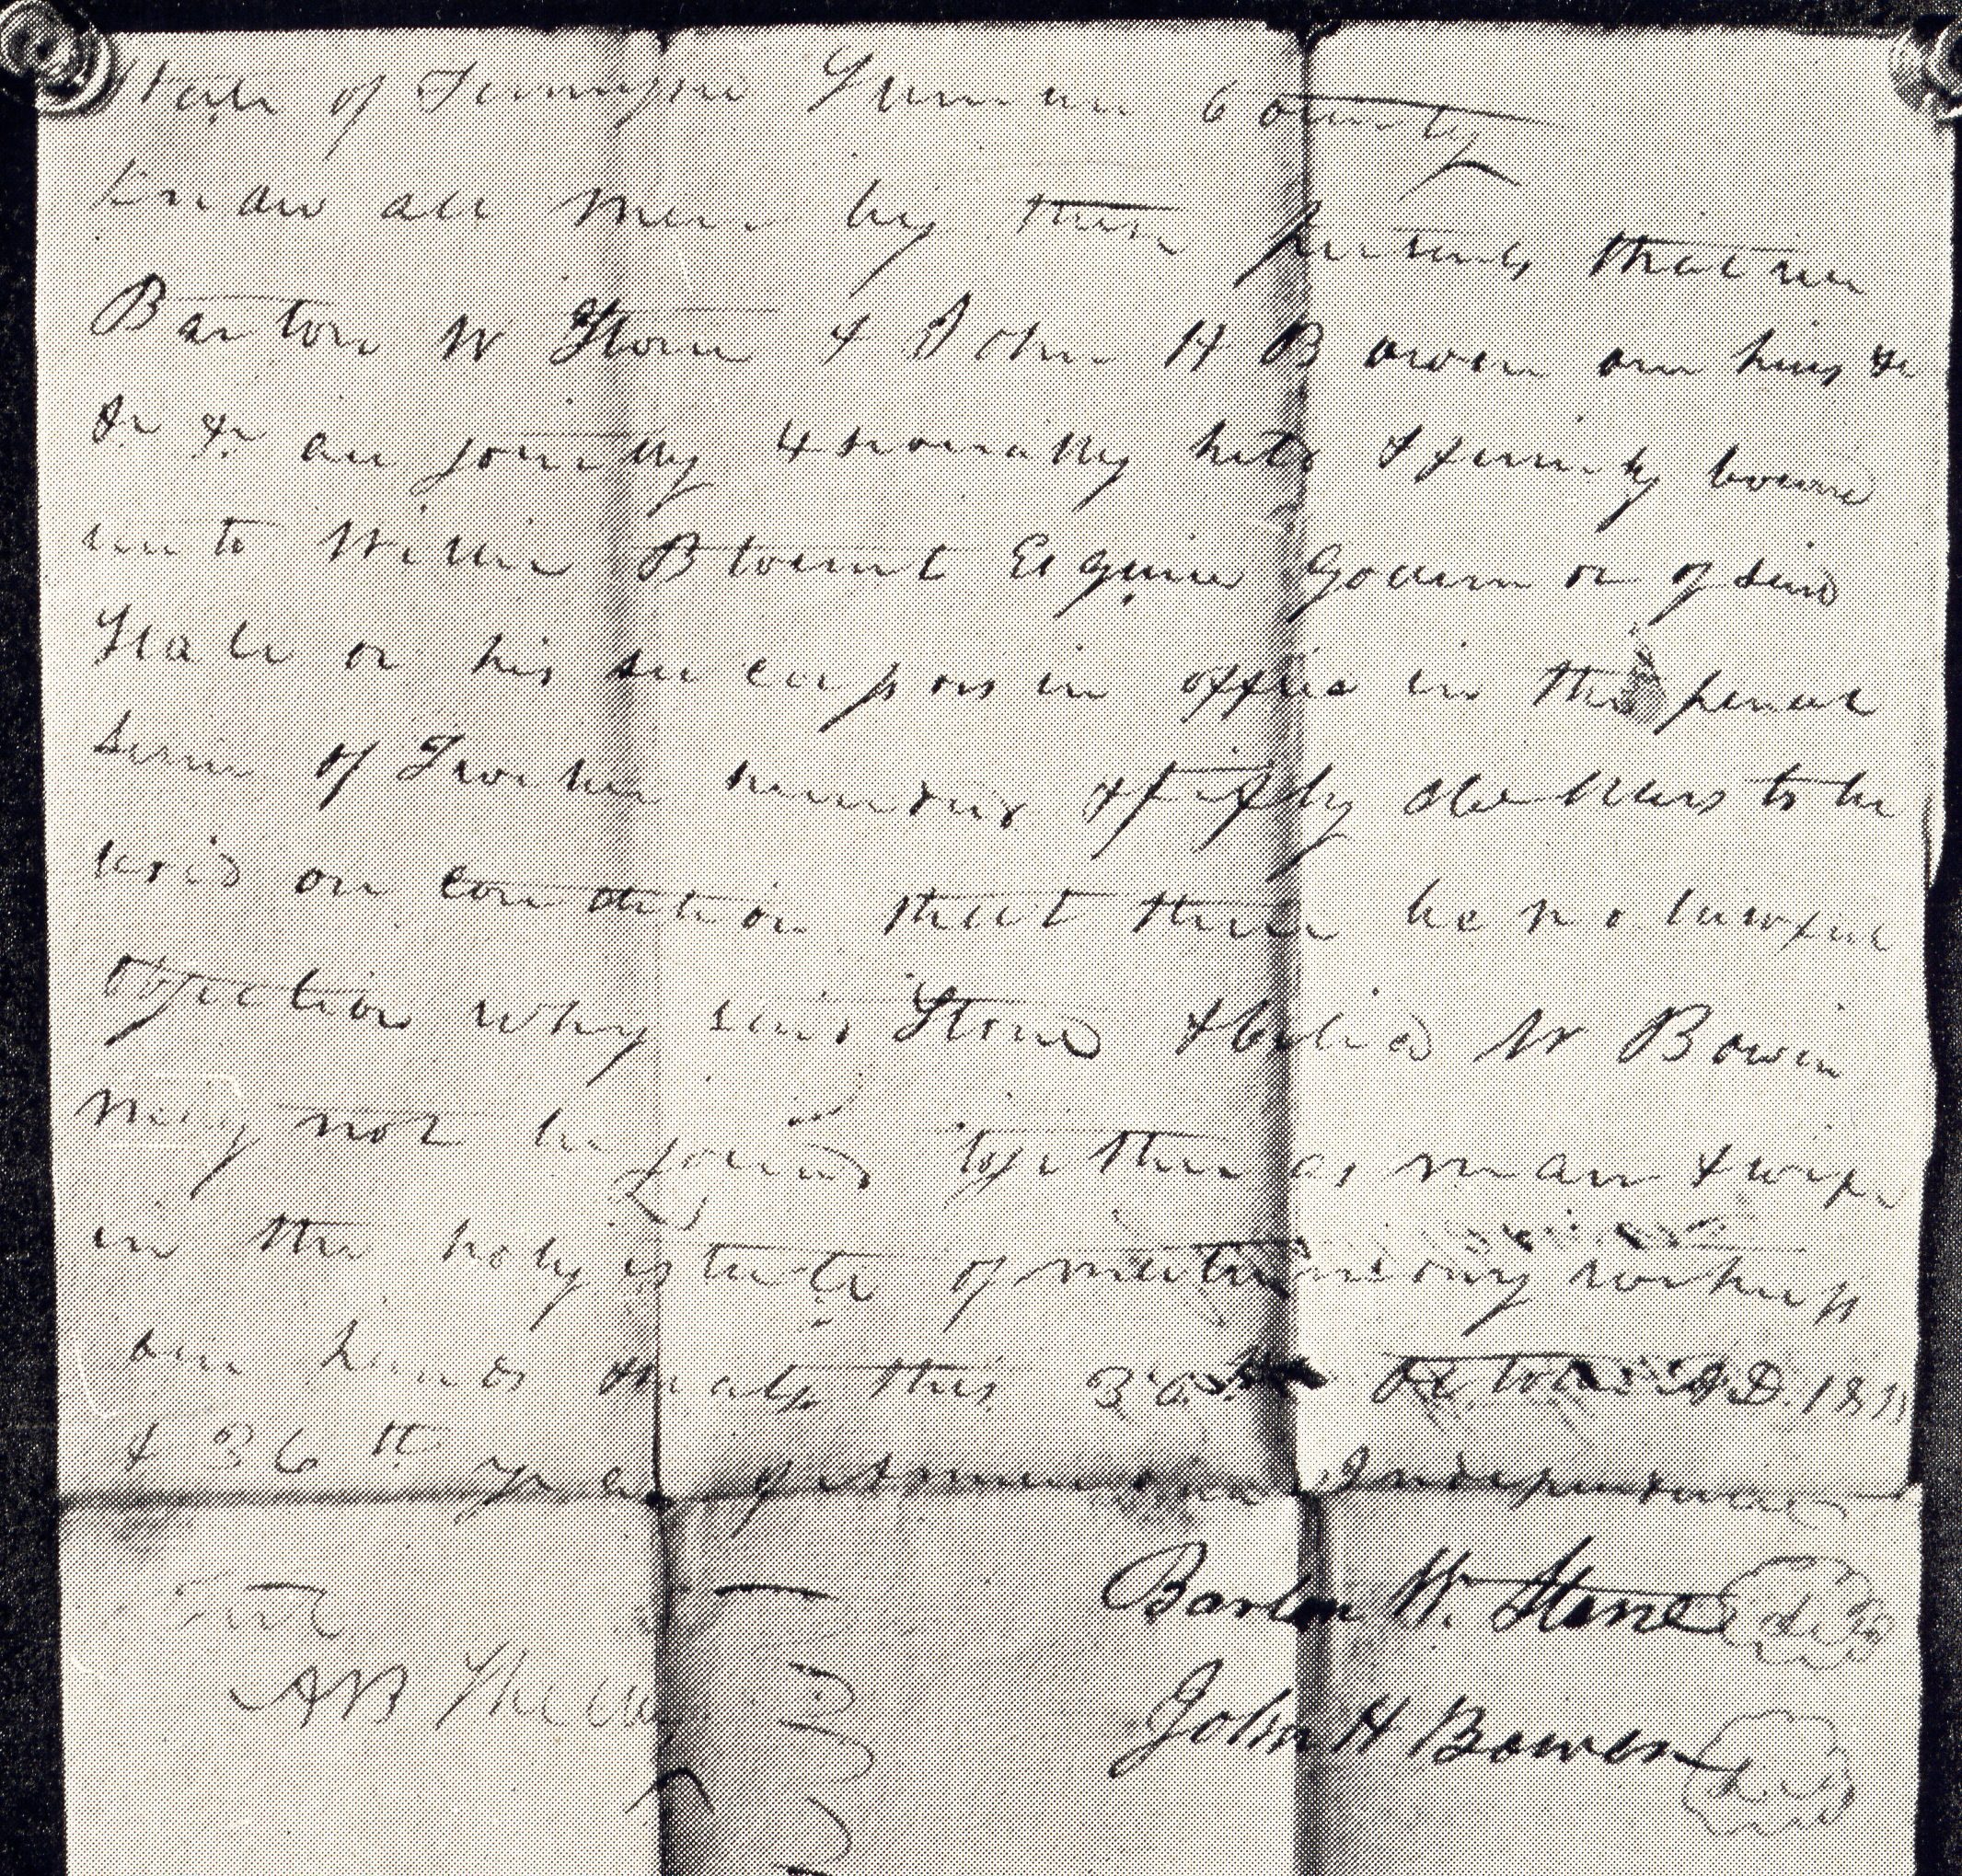 State of Tennessee Sumner County
Know all men by these presents that we
Barton W Stone & John H Bowen our heirs &c
&c &c are jointly & severally held & firmly bound
unto Willie Blount Esquire Governor of said
State or his successors in office in the penal
sum of Twelve hundred & fifty dollars to be
void on condition that there be no lawful
objection why said Stone & Celia W Bowen
may not be joined together as man & wife
in the holy estate of matrimony witness
our hands & seals this 30th October AD. 1811
& 36th year of American Independence
Test
Barton W. Stone Seal
AB
John H Bowen Seal